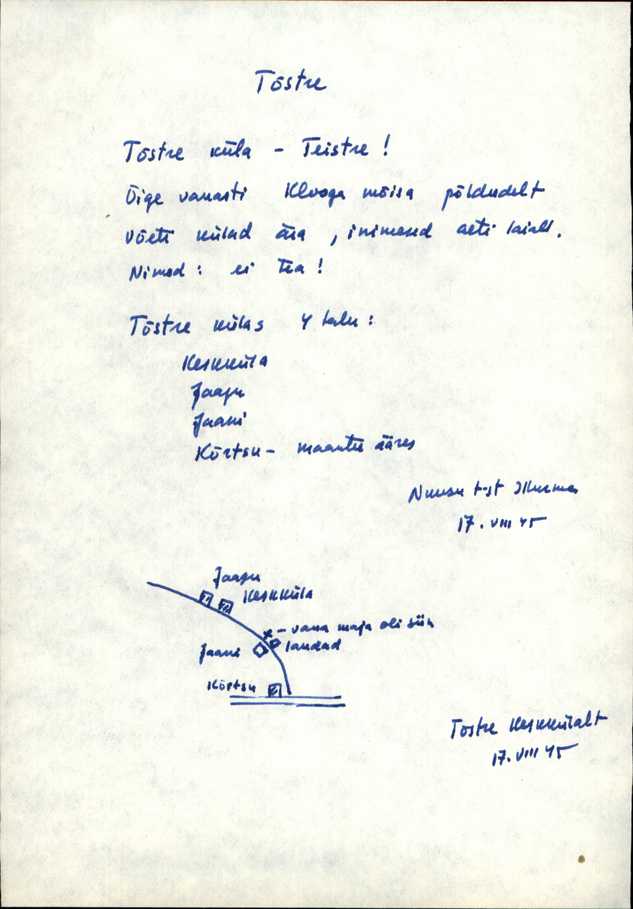 Tõstre
Tõstre küla - Teistre!
Õige vanasti Klooga mõisa põldudelt
võeti külad ära, inimesed aeti laiali.
Nimed: ei tea!
Tõstre külas 4 talu:
Keskküla
Jaagu
Jaani
Kõrtsu - maantee ääres
t-st
17. VIII 45
Jaagu
Keskküla
x - vana maja oli siin
Jaani laudad
Kõrtsu
Tõstre Keskkülalt
17. VIII 45